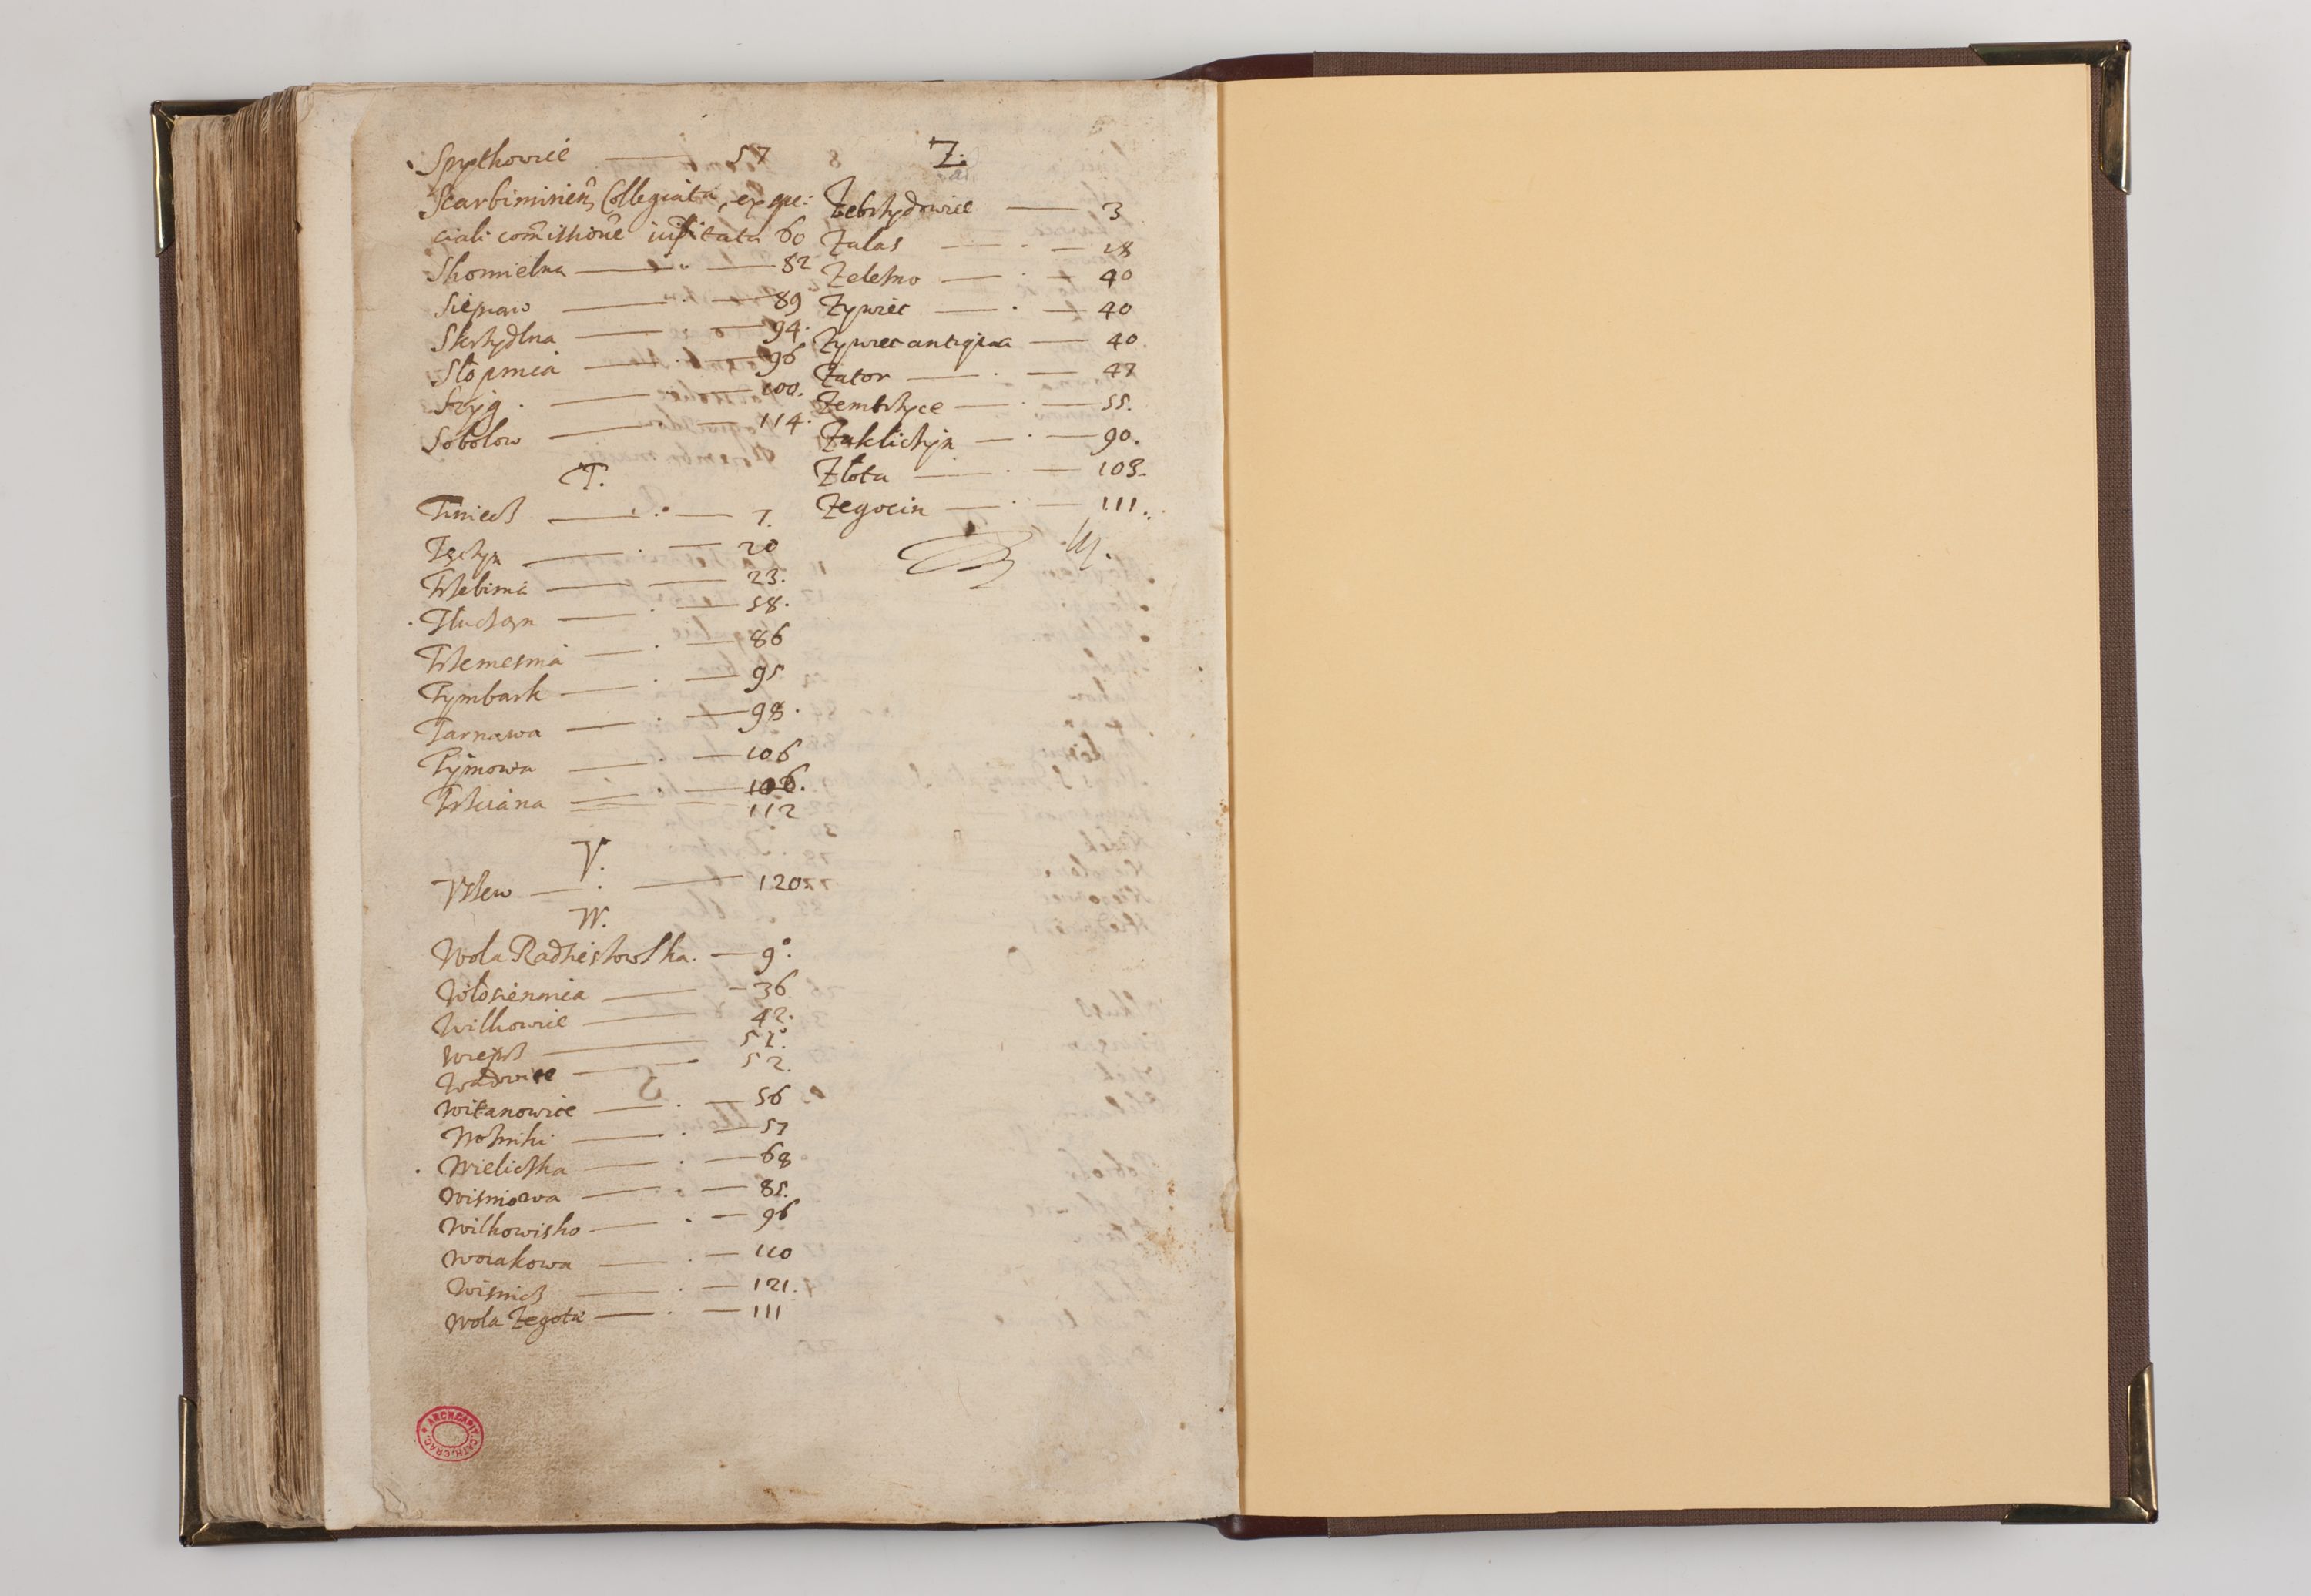 Spytkowice 57
Scarbimirieñ Collegiata, ex spe:
ciali com̃issione uisitata 60
Skomielna 82
Siepraw 89
Skrzydlna 94.
Słopnica 96
Szyg. 100.
Sobolow 114.
T.
Tiniecz 7.
Tęczyn 20
Trzebinia 23.
Tłuczan 58.
Trzemesnia 86
Tymbark 95
Tarnawa 98.
Tymowa 106
Trzciana 106.
112
V.
Vszew 120
W.
Wola Radziszowska. 9.
Włosienmica 36
Wilkowice 42.
Wieprz 51.
Wadowice 52.
Witanowice 56
Woźniki 57
Wieliczka 68
Wisniowa 85.
Wilkowisko 96
Woiakowa 110
Wisnicz 121.
Wola Zegota 111
Z.
Zebrzydowice 3
Zalas 18
Zelesno 40
Zywiec 40
Zywiec antiqua 40.
Zator 47
Zembrzyce 55.
Zaklichyn 90.
Złota 103.
Zegocin 111.
ARCH. CAPIT. CATH. CRAC.